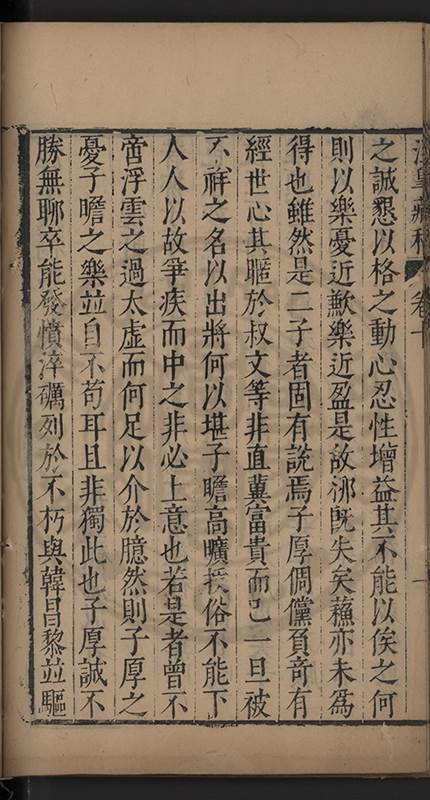 之誠懇以格之動心忍性增益其不能以俟之何
則以樂憂近歉樂近盈是故栁旣失矣蘓亦未爲
得也雖然是二子者固有說焉子厚倜儻負奇有
經世心其暱於叔文等非直冀富貴而已一旦被
不祥之名以出將何以堪子瞻高曠援俗不能下
人人以故爭疾而中之非必上意也若是者曾不
啻浮雲之過太虚而何足以介於臆然則子厚之
憂子瞻之樂並自不苟耳且非獨此也子厚誠不
勝無聊卒能發憤淬礪列於不朽與韓昌黎並驅